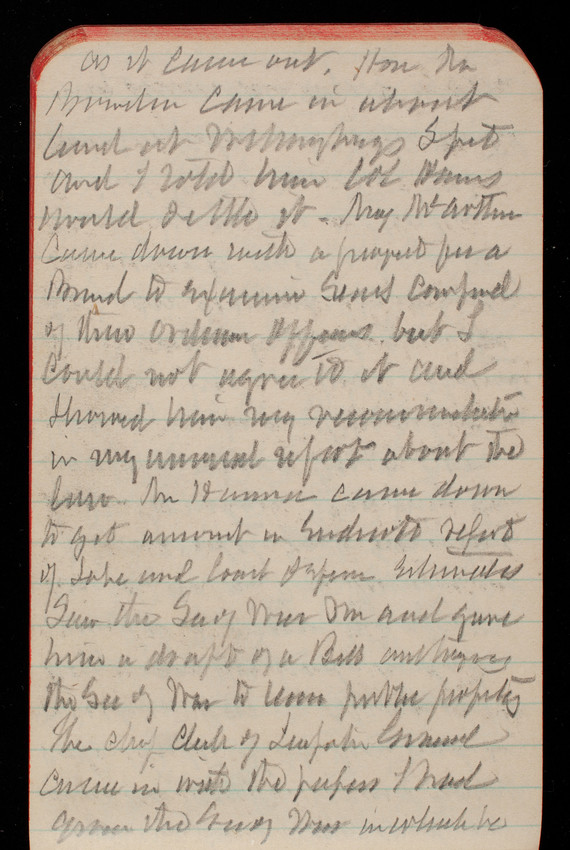 as it came out. Hon Mr
came in about
land at Spit
and I told him Col Hains
would settle it. Maj McArthur
came down with a project for a
Board to examine Guns composed
of three Ordnance Officers. but I
could not agree to it and
showed him my recommendation
in my annual report about the
law. Mr Hanna came down
to get amount in Endicott report
of Lake and Coast Defense Estimates
Saw the Sec of War and gave
him a draft of a Bill authorizing
the Sec of War to lease public property
The chief clerk of Inspector General
came in with the papers I had
given the Sec of War in which he